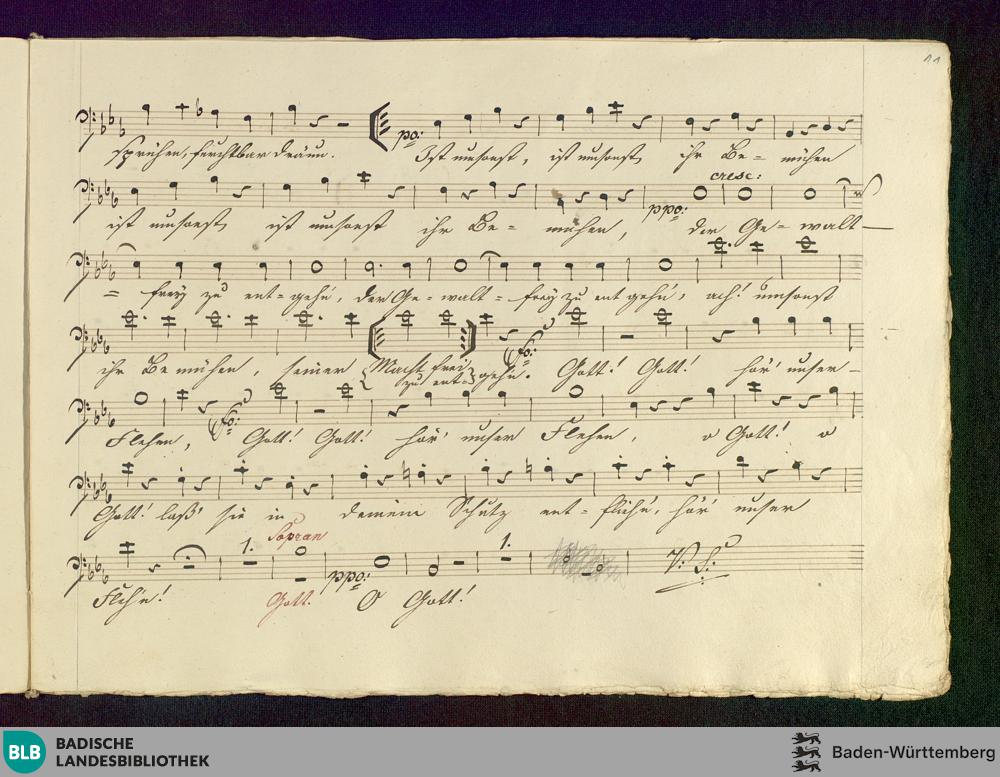 11
sprühen, furchtbar dräun. po: Ist umsonst, ist umsonst ihr Be= mühen
cresc:
ist umsonst ist umsonst ihr Be= mühen, ppo: der Ge= walt
= frey zu ent=gehn, der Ge=walt=frey zu entgehn, ach! umsonst
ihr Bemühen, seiner Macht frei zu ent=gehn. fo: Gott! Gott! hör' unser
Flehen, fo: Gott! Gott! hör' unser Flehen, o Gott! o
Gott! laß' sie in deinem Schutz ent=fliehn, hör' unser
1. Sopran 1.
Flehn! Gott. ppo: O Gott! V: S:
BLB BADISCHE LANDESBIBLIOTHEK
Baden-Württemberg